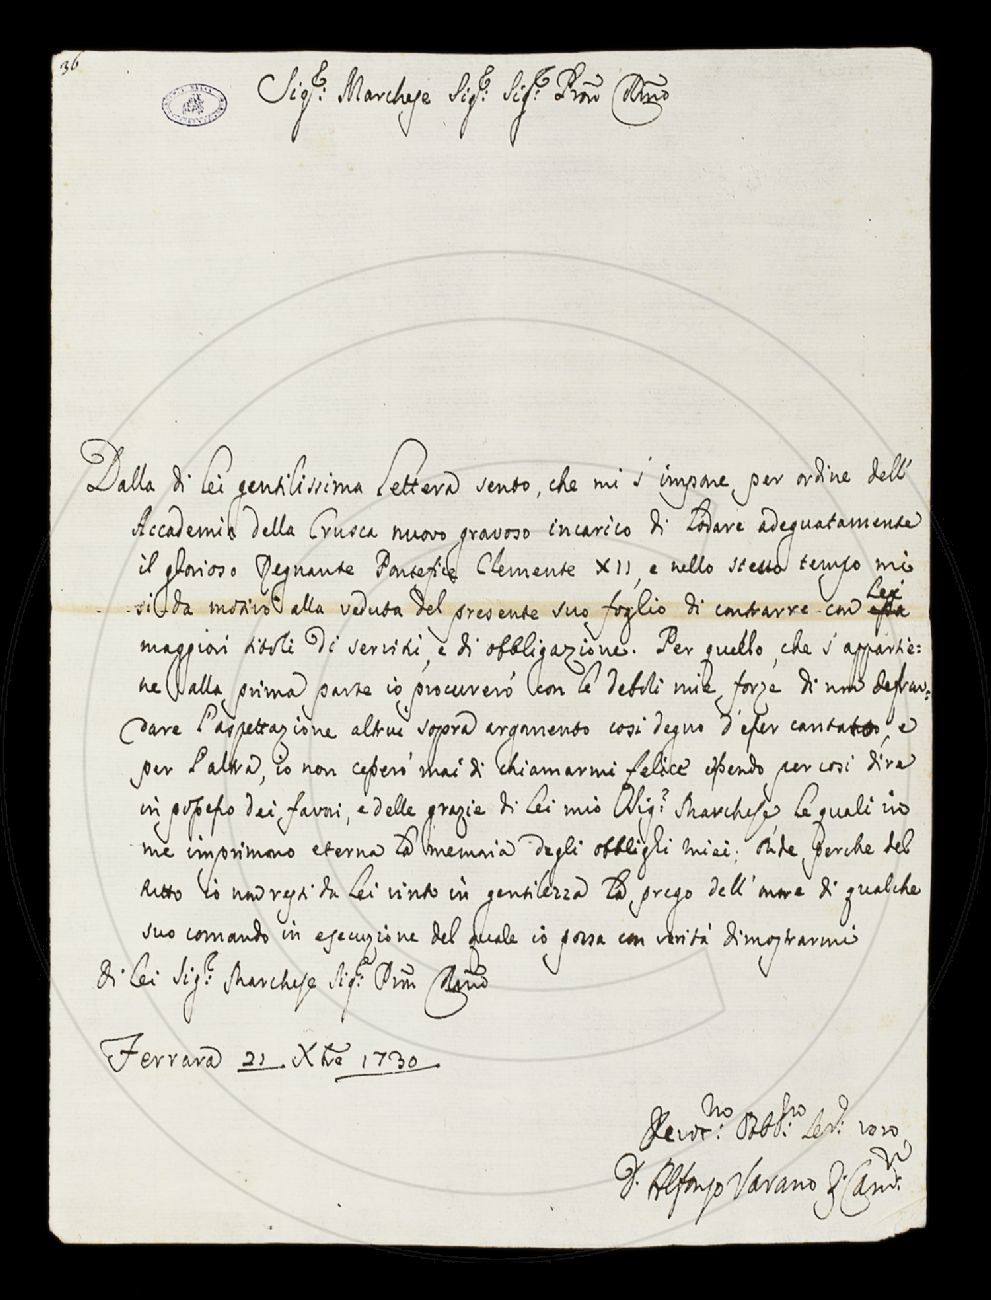 36
Sig.re Marchese Sig.re Sig.re Pron Colmo
Dalla di lei gentilissima Lettera sento, che mi s'impone per ordine dell'
Accademia della Crusca nuovo gravoso incarico di lodare adeguatamente
il glorioso Regnante Pontefice Clemente XII, e nello stesso tempo mi
si da motivo alla veduta del presente suo foglio di contrarre con Lei
maggiori titoli di servitù, e di obbligazione. Per quello, che s'appartie=
ne alla prima parte io procurerò con le deboli mie forze di non defrau=
dare l'aspettazione altrui sopra argomento così degno d'esser cantato, e
per l'altra, io non cesserò mai di chiamarmi felice essendo per così dire
in possesso dei favori, e delle grazie di lei mio Sig.re Marchese le quali in
me imprimono eterna la memoria degli obblighi miei; onde perche del
tutto io non resti da Lei vinto in gentilezza la prego dell'onore di qualche
suo comando in esecuzione del quale io possa con verità dimostrarmi
di lei Sig.re Marchese Sig.re Pron Colmo
Ferrara 21 Xbre 1730
Devot.mo Obb.mo Ser.e vero
D. Alfonso Varano di Cam.